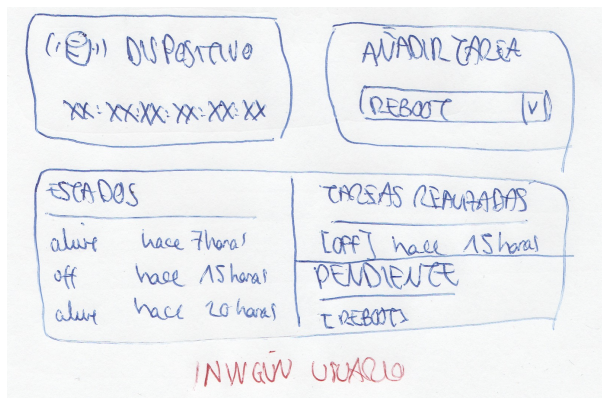 DISPOSITIVO
XX:XX:XX:XX:XX:XX
AÑADIR TAREA
REBOOT
ESTADOS
alive hace 7 horas
off hace 15 horas
alive hace 20 horas
TAREAS REALIZADAS
[OFF] hace 15 horas
PENDIENTE
[REBOOT]
NINGÚN USUARIO